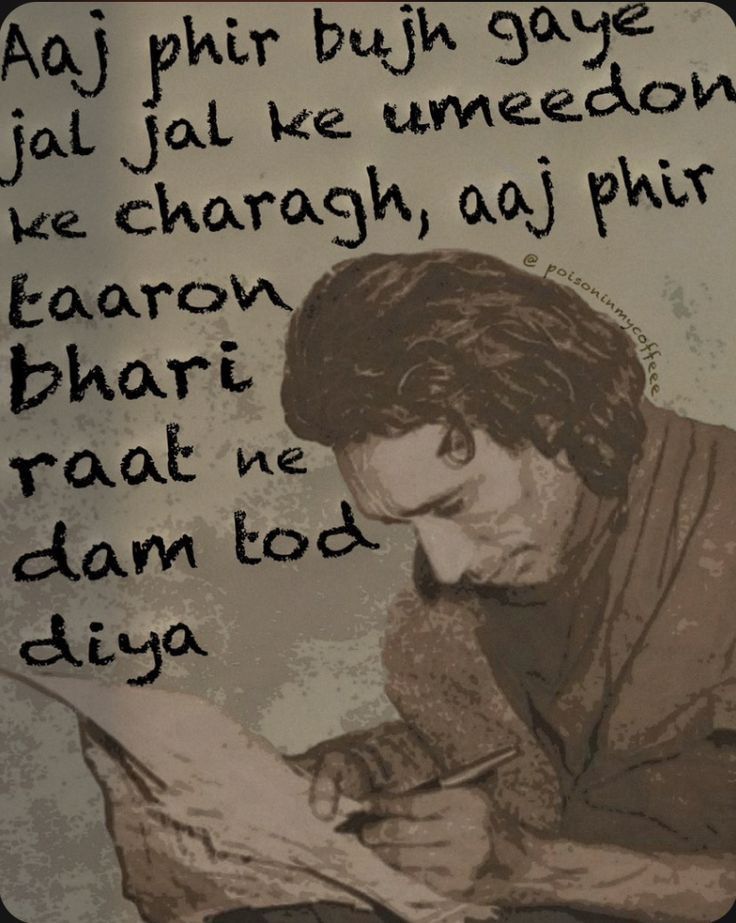 Aaj phir bujh gaye
jal jal ke umeedon
ke charagh, aaj phir
taaron
bhari
raat ne
dam tod
diya
@ poisoninmycoffeee